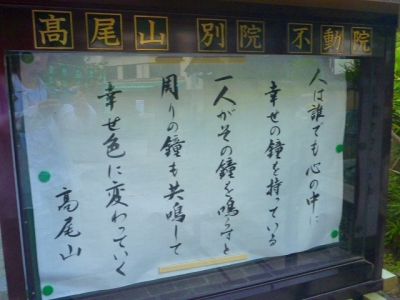 高尾山別院 不動院
人は誰でも心の中に
幸せの鐘を持っている
一人がその鐘を鳴らすと
周りの鐘も共鳴して
幸せ色に変わっていく
高尾山